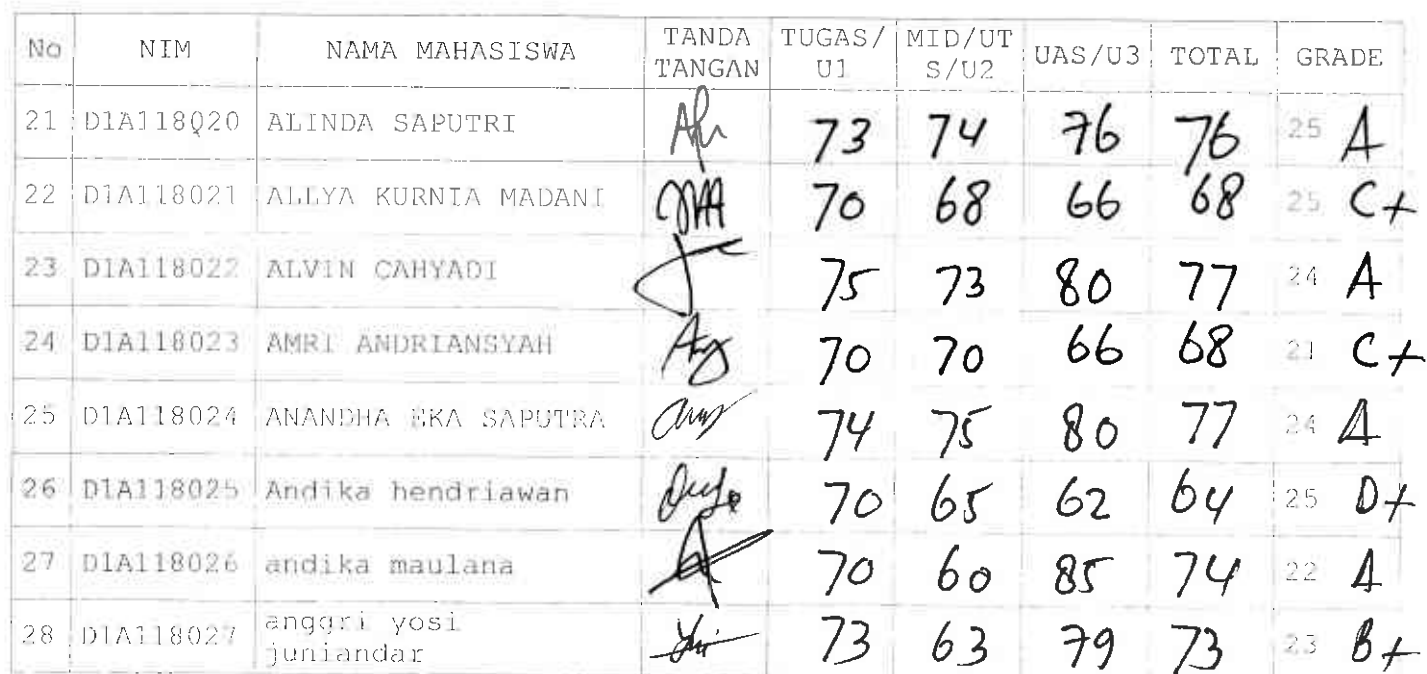 No NIM NAMA MAHASISWA TANDA TANGAN TUGAS/U1 MID/UTS/U2 UAS/U3 TOTAL GRADE
21 D1A118020 ALINDA SAPUTRI 73 74 76 76 25 A
22 D1A118021 ALLYA KURNIA MADANI 70 68 66 68 25 C+
23 D1A118022 ALVIN CAHYADI 75 73 80 77 24 A
24 D1A118023 AMRI ANDRIANSYAH 70 70 66 68 21 C+
25 D1A118024 ANANDHA EKA SAPUTRA 74 75 80 77 24 A
26 D1A118025 Andika hendriawan 70 65 62 64 25 D+
27 D1A118026 andika maulana 70 60 85 74 22 A
28 D1A118027 anggri yosi juniandar 73 63 79 73 23 B+